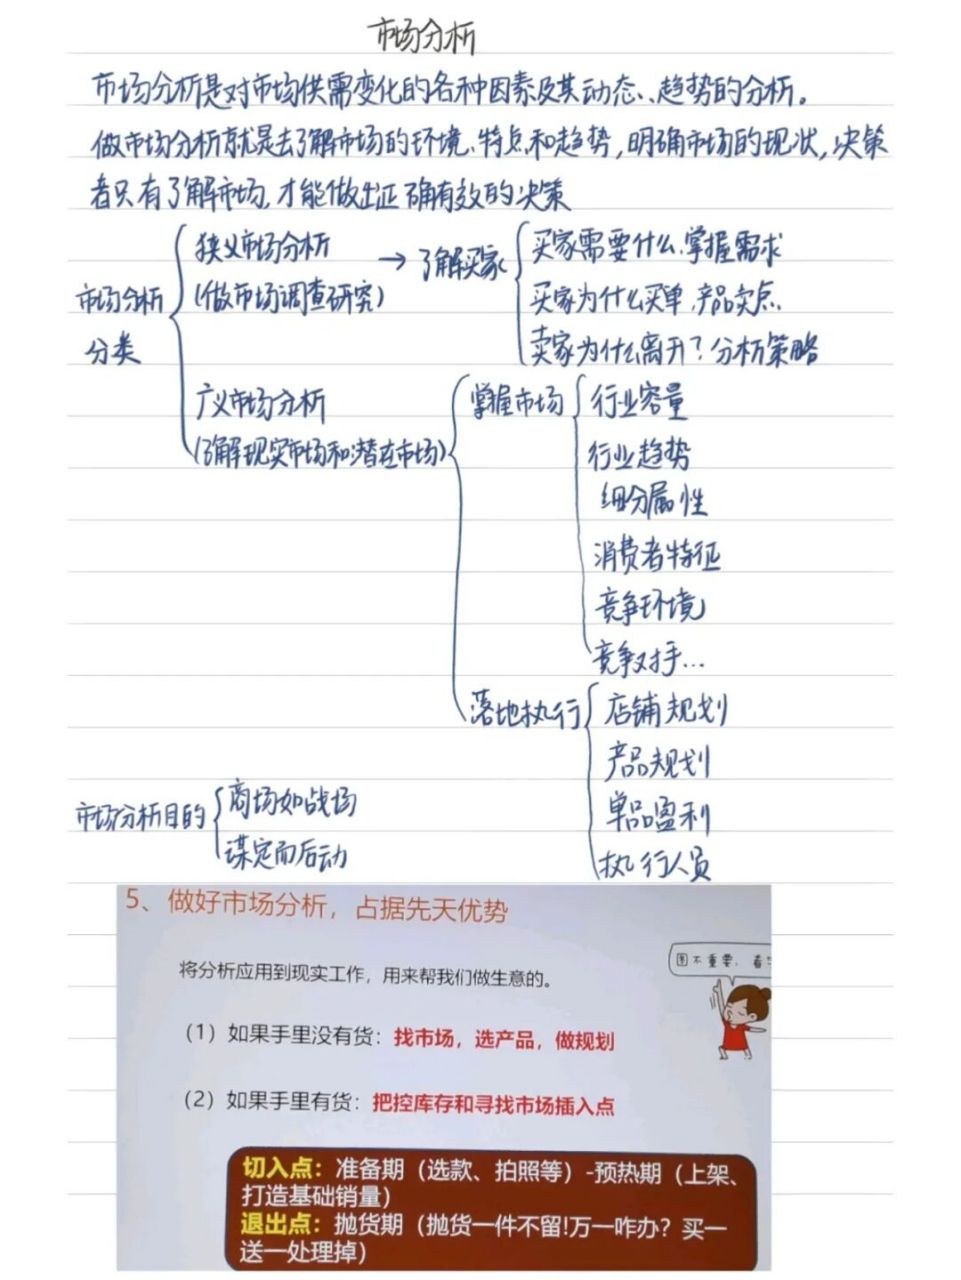 市场分析
市场分析是对市场供需变化的各种因素及其动态、趋势的分析。
做市场分析就是去了解市场的环境、特点和趋势,明确市场的现状,决策
者只有了解市场,才能做出正确有效的决策
市场分析
分类
狭义市场分析
(做市场调查研究)
→ 了解买家
买家需要什么,掌握需求
买家为什么买单,产品卖点
卖家为什么离开?分析策略
广义市场分析
(了解现实市场和潜在市场)
掌握市场
行业容量
行业趋势
细分属性
消费者特征
竞争环境
竞争对手...
落地执行
店铺规划
产品规划
单品盈利
执行人员
市场分析目的
商场如战场
谋定而后动
5、做好市场分析，占据先天优势
将分析应用到现实工作，用来帮我们做生意的。
图不重要，看
（1）如果手里没有货：找市场，选产品，做规划
（2）如果手里有货：把控库存和寻找市场插入点
切入点：准备期（选款、拍照等）-预热期（上架、
打造基础销量）
退出点：抛货期（抛货一件不留!万一咋办？买一
送一处理掉）